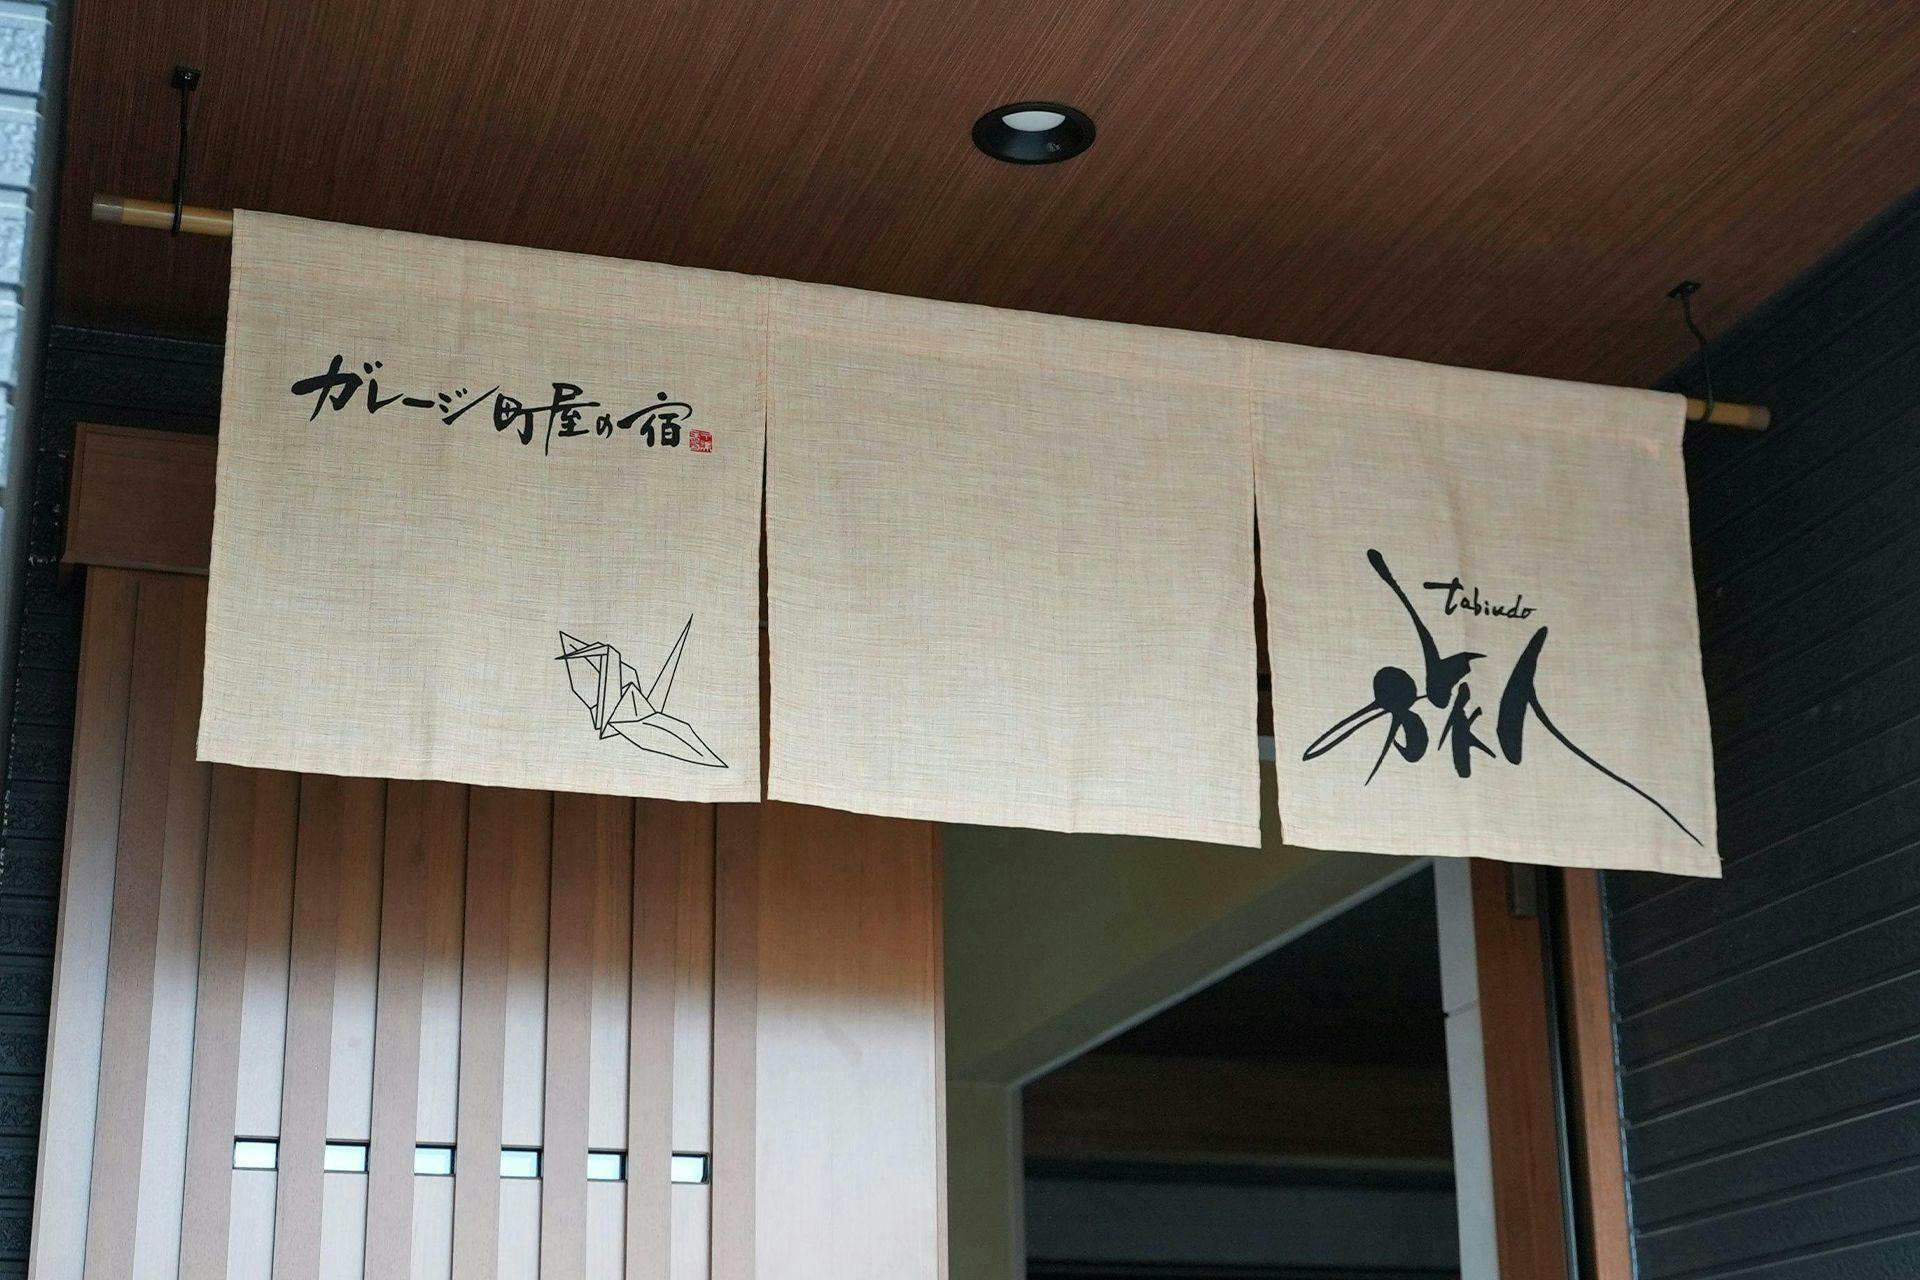 ガレージ町屋の宿
tabiudo
旅人